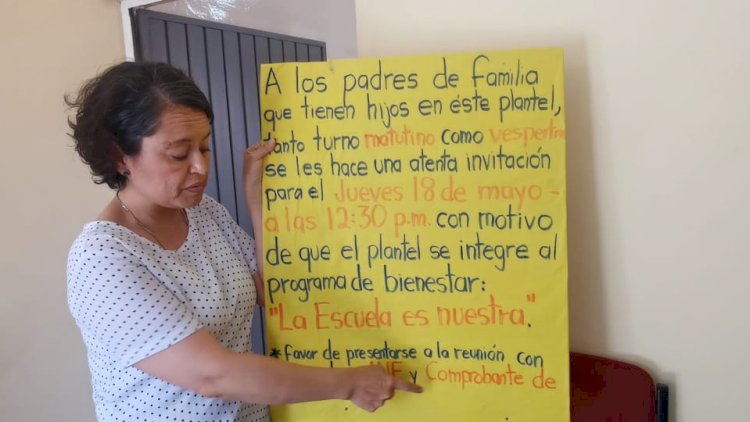 A los padres de familia
que tienen hijos en éste plantel,
tanto turno matutino como vespertino
se les hace una atenta invitación
para el Jueves 18 de mayo -
a las 12:30 p.m. con motivo
de que el plantel se integre al
programa de bienestar:
"La Escuela es nuestra".
* favor de presentarse a la reunión con
INE y Comprobante de